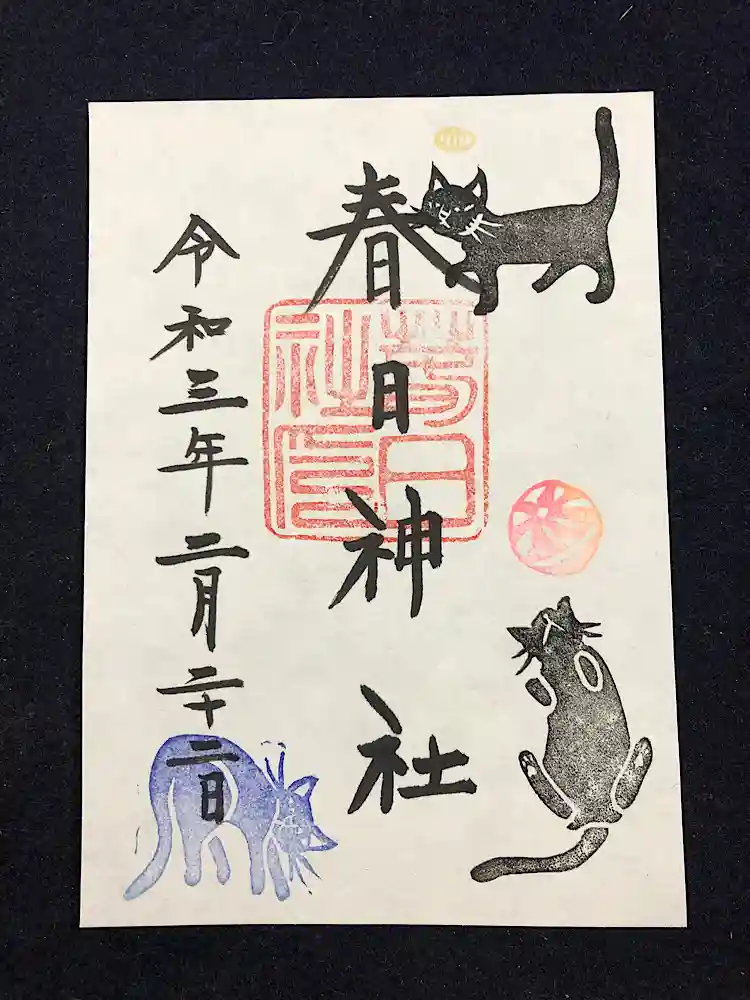 春日神社
令和三年二月二十二日
春日社印